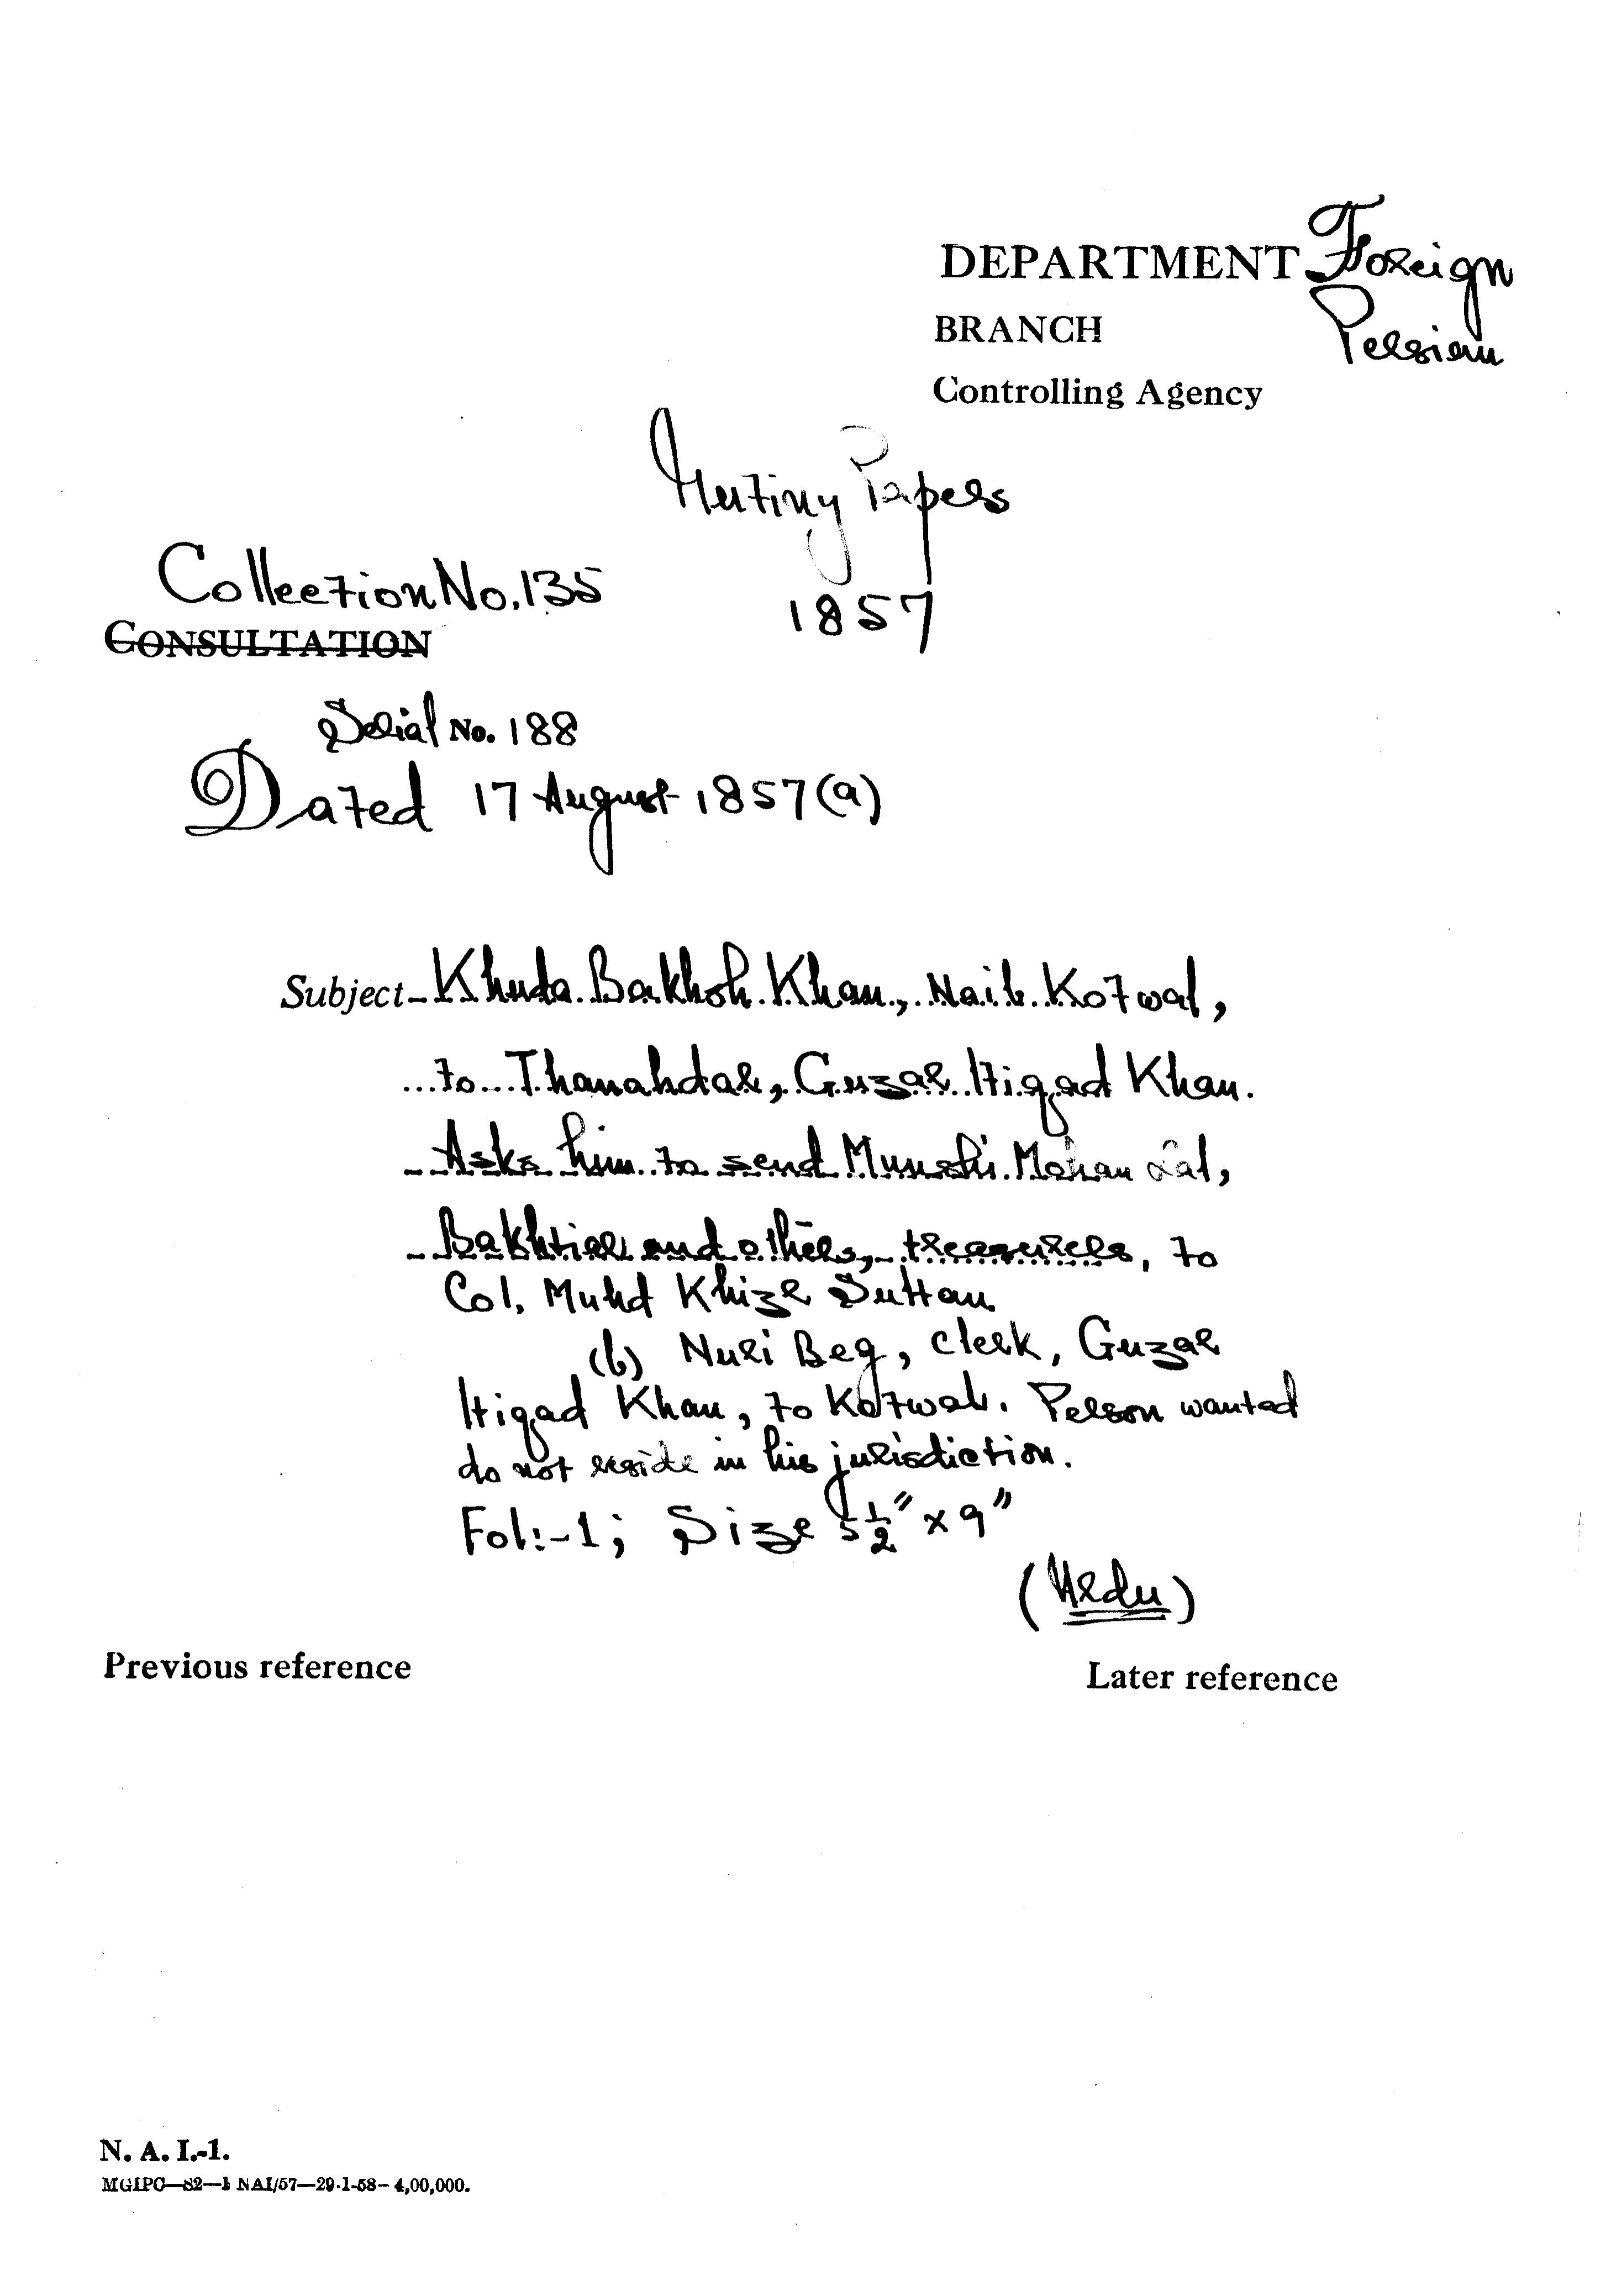 DEPARTMENT Foreign
BRANCH Persian
Controlling Agency
Mutiny Papers
1857
Collection No. 135
CONSULTATION
Serial No. 188
Dated 17 August 1857 (a)
Subject - Khuda Bakhsh Khan, Naib Kotwal,
to Thanahdar, Guzar Itiqad Khan.
Asks him to send Munshi Mohan Lal,
Bakhtiar and others, treasurers, to
Col. Muhd Khizr Sultan
(b) Nuri Beg, clerk, Guzar
Itiqad Khan, to Kotwal. Person wanted
do not reside in his jurisdiction.
Fol:-1; Size 5½" x 9"
(Urdu)
Previous reference
Later reference
N. A. I.-1.
MGIPC—S2—1 NAI/57—29-1-58—4,00,000.